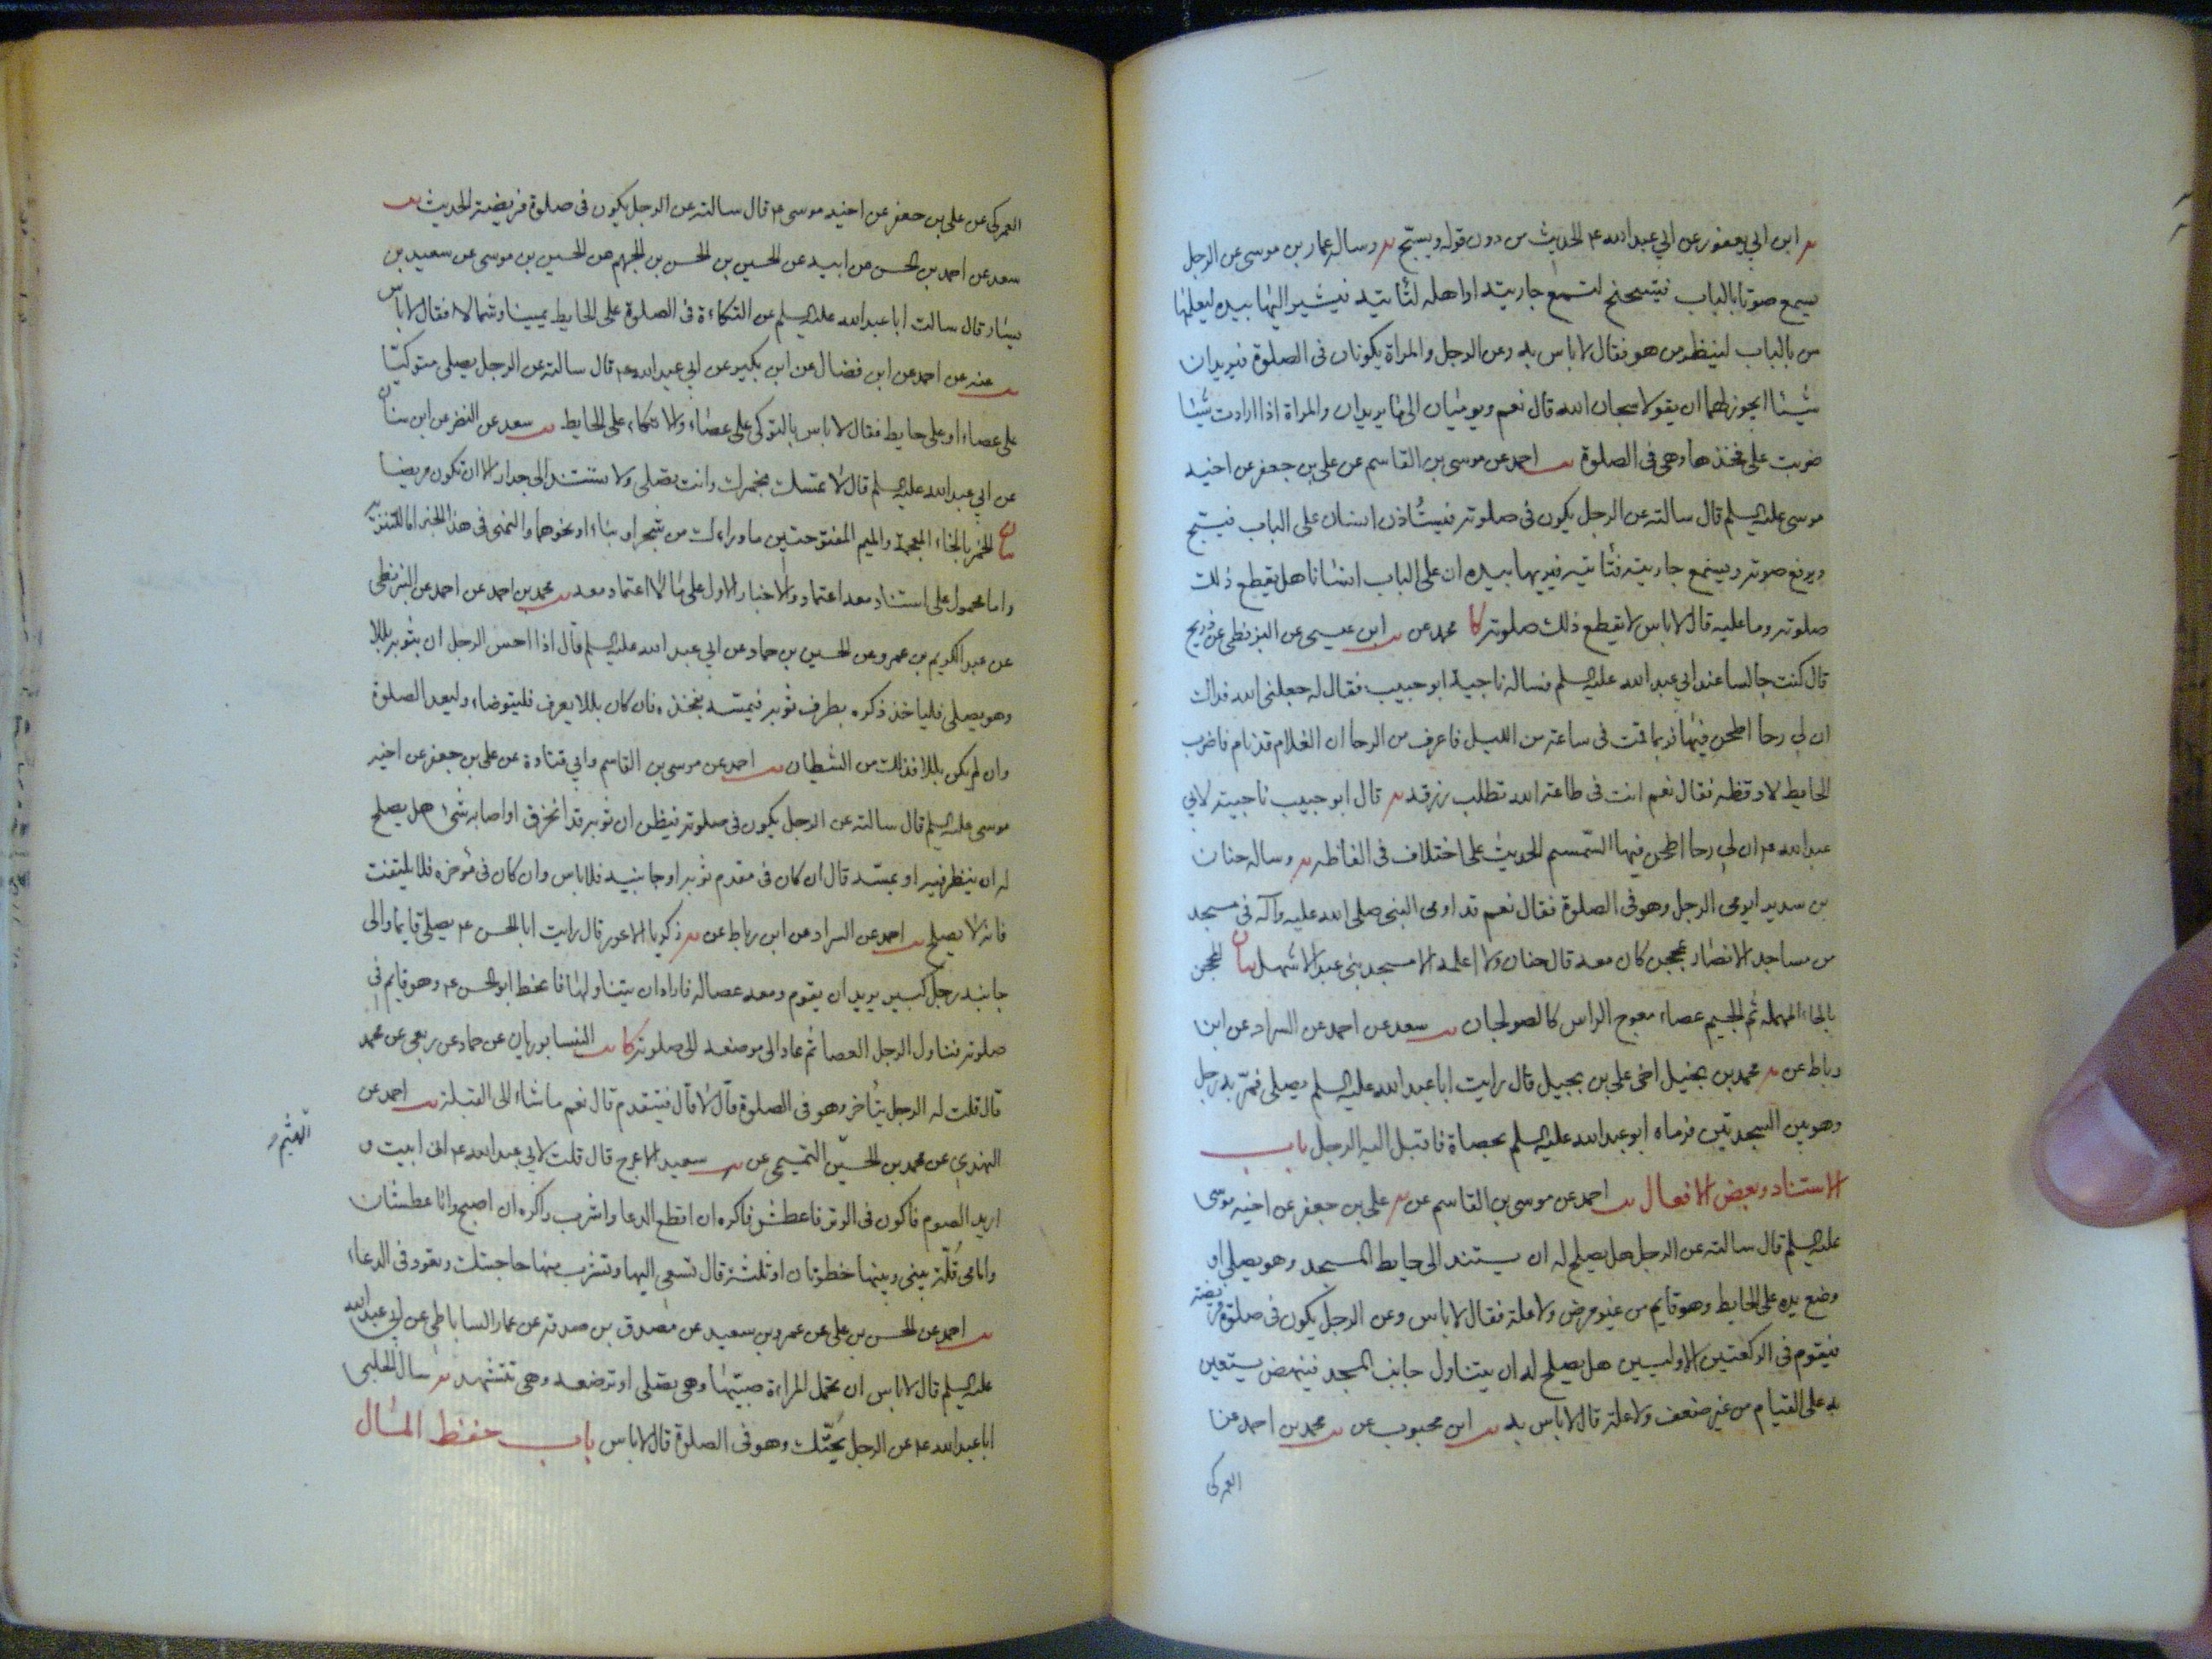 يه ابن ابي يعفور عن ابي عبد الله ع الحديث من دون قوله ويسبّح يه وساله عمار بن موسى عن الرجل
يسمع صوتا بالباب فيتنحنح لتسمع جاريته او اهله لتأتيه فيشير اليها بيده ليعلمها
من بالباب لينظر من هو فقال لا باس به وعن الرجل والمراة يكونان فى الصلوة فيريدان
شيئا ايجوز لهما ان يقولا سبحان الله قال نعم ويوميان الى ما يريدان والمراة اذا ارادت شيئا
ضربت على فخذها وهى فى الصلوة يب احمد عن موسى بن القاسم عن على بن جعفر عن اخيه
موسى عليه السلم قال سالته عن الرجل يكون فى صلوته فيستأذن انسان على الباب فيسبح
ويرفع صوته ويسمع جاريته فتأتيه فيريها بيده ان على الباب انسانا هل يقطع ذلك
صلوته وما عليه قال لا باس لا يقطع ذلك صلوته كا محمد عن يب ابن عيسى عن البزنطى عن ذريح
قال كنت جالسا عند ابي عبد الله عليه السلم فساله ناجية ابو حبيب فقال له جعلنى الله فداك
ان لى رحا اطحن فيها فربما قمت فى ساعة من الليل فاعرف من الرحا ان الغلام قد نام فاضرب
الحايط لاوقظه فقال نعم انت فى طاعة الله تطلب رزقه يه قال ابو حبيب ناجية لابي
عبد الله ع ان لى رحا اطحن فيها السّمسم الحديث على اختلاف فى الفاظه يه وساله حنان
بن سدير ايومى الرجل وهو فى الصلوة فقال نعم قد اومى النبى صلى الله عليه وآله فى مسجد
من مساجد الانصار بمحجن كان معه قال حنان ولا اعلمه الا مسجد بنى عبد الاشهل بيان المحجن
بالحاء المهملة ثم الجيم عصاء معوج الراس كالصولجان يب سعد عن احمد عن السراد عن ابن
رباط عن يه محمد بن بجيل اخى على بن بجيل قال رايت ابا عبد الله عليه السلم يصلى فمرّ به رجل
وهو بين السجدتين فرماه ابو عبد الله عليه السلم بحصاة فاقبل اليه الرجل باب
الاستناد وبعض الافعال يب احمد عن موسى بن القاسم عن يه على بن جعفر عن اخيه موسى
عليه السلم قال سالته عن الرجل هل يصلح له ان يستند الى حايط المسجد وهو يصلى او
وضع يده على الحايط وهو قايم من غير مرض ولا علة فقال لا باس وعن الرجل يكون فى صلوة فريضة
فيقوم فى الركعتين الاوليين هل يصلح له ان يتناول جانب المسجد فينهض يستعين
به على القيام من غير ضعف ولا علة قال لا باس به يب ابن محبوب عن يب محمد بن احمد عن
العمركى
العمركى عن على بن جعفر عن اخيه موسى ع قال سالته عن الرجل يكون فى صلوة فريضة الحديث يب
سعد عن احمد بن الحسن عن ابيه عن الحسين بن الحسن بن الجهم عن الحسين بن موسى عن سعيد بن
يسار قال سالت ابا عبد الله عليه السلم عن التكاءة فى الصلوة على الحايط يمينا وشمالا فقال لا باس
يب عنه عن احمد عن ابن فضال عن ابن بكير عن ابي عبد الله ع قال سالته عن الرجل يصلى متوكيّا
على عصاء او على حايط فقال لا باس بالتوكى على عصاء والاتكاء على الحايط يب سعد عن النضر عن ابن سنان
عن ابي عبد الله عليه السلم قال لا تمسك بخمرك وانت تصلى ولا تستند الى جدار الا ان تكون مريضا
بيان الخمر بالخاء المعجمة والميم المفتوحتين ما وراءك من شجر او بناء او نحوهما والنهى فى هذا الخبر اما للتنزيه
واما محمول على استناد معه اعتماد والاخبار الاول على ما لا اعتماد معه يب محمد بن احمد عن احمد عن البزنطى
عن عبد الكريم بن عمرو عن الحسين بن حماد عن ابي عبد الله عليه السلم قال اذا احس الرجل ان بثوبه بللا
وهو يصلى فلياخذ ذكره بطرف ثوبه فيمسّه بفخذه فان كان بللا يعرف فليتوضاء وليعد الصلوة
وان لم يكن بللا فذلك من الشيطان يب احمد عن موسى بن القاسم وابي قتادة عن على بن جعفر عن اخيه
موسى عليه السلم قال سالته عن الرجل يكون فى صلوته فيظن ان ثوبه قد انخرق او اصابه شىء هل يصلح
له ان ينظر فيه او يمسّه قال ان كان فى مقدم ثوبه او جانبيه فلا باس وان كان فى مؤخره فلا يلتفت
فانه لا يصلح يب احمد عن السراد عن ابن رباط عن يه زكريا الاعور قال رايت ابا الحسن ع يصلى قايما والى
جانبه رجل كبير يريد ان يقوم ومعه عصا له فاراد ان يتناولها فانحط ابو الحسن ع وهو قايم فى
صلوته فناول الرجل العصا ثم عاد الى موضعه الى صلوته كا يب النيسابوريان عن حماد عن ربعى عن محمد
قال قلت له الرجل يتأخر وهو فى الصلوة قال لا قال فيتقدم قال نعم ما شاء الى القبلة يب احمد عن
النهدي عن محمد بن الحسين التميمى عن يه سعيد الاعرج قال قلت لابي عبد الله ع انى ابيت و
الهيثم
اريد الصوم فاكون فى الوتر فاعطش فاكره ان اقطع الدعا واشرب واكره ان اصبح وانا عطشان
وامامى قُلّة بينى وبينها خطوتان او ثلثة قال تسعى اليها وتشرب منها حاجتك وتعود فى الدعاء
يب احمد عن الحسن بن على عن عمرو بن سعيد عن مصدق بن صدقة عن عمار الساباطى عن ابى عبد الله
عليه السلم قال لا باس ان تحمل المراءة صبيّها وهى تصلى او ترضعه وهى تتشهد يه سال الحلبى
ابا عبد الله ع عن الرجل يحتّك وهو فى الصلوة قال لا باس باب حفظ المال